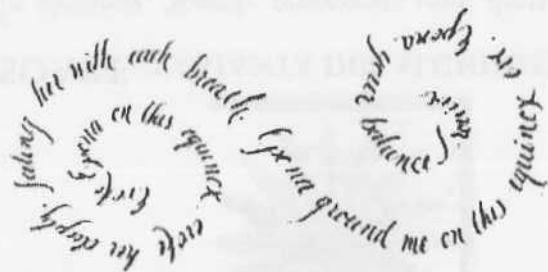 Evoke Epona on this equinox evoke her deeply, feeling her with each breath. Epona ground me on this equinox eve. Epona your balance I